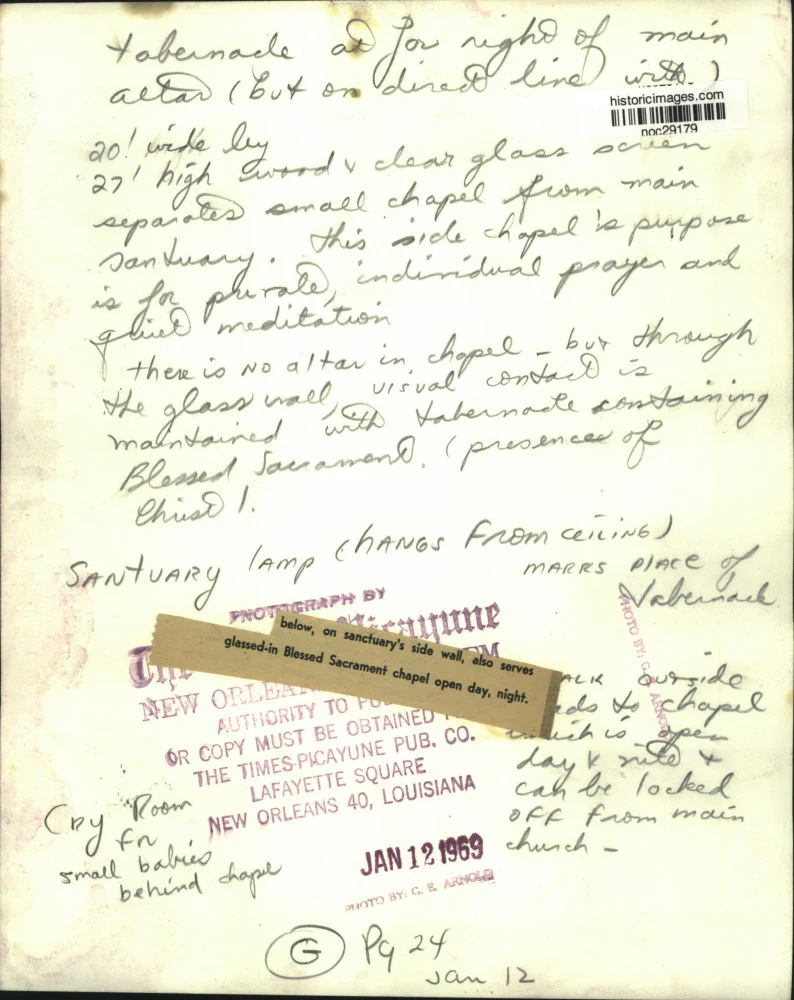 tabernacle at far right of main
altar (but on direct line with)
historicimages.com
noc29179
20' wide by
27' high wood & clear glass screen
separates small chapel from main
santuary. This side chapel's purpose
is for private, individual prayer and
quiet meditation
there is NO altar in chapel - but through
the glass wall, visual contact is
maintained with tabernacle containing
Blessed Sacrament. (presence of
Christ).
SANTUARY LAMP (HANGS FROM CEILING)
MARKS PLACE of
tabernacle
PHOTOGRAPH BY
Picayune
below, on sanctuary's side wall, also serves
glassed-in Blessed Sacrament chapel open day, night.
NEW ORLEA
AUTHORITY TO PU
OR COPY MUST BE OBTAINED
THE TIMES-PICAYUNE PUB. CO.
LAFAYETTE SQUARE
NEW ORLEANS 40, LOUISIANA
PHOTO BY: G. E. ARNOLD
ALK outside
ads to chapel
which is open
day & nite &
can be locked
OFF from main
church -
Cry Room
for
small babies
behind chapel
JAN 12 1969
PHOTO BY: G. E. ARNOLD
G Pg 24
Jan 12